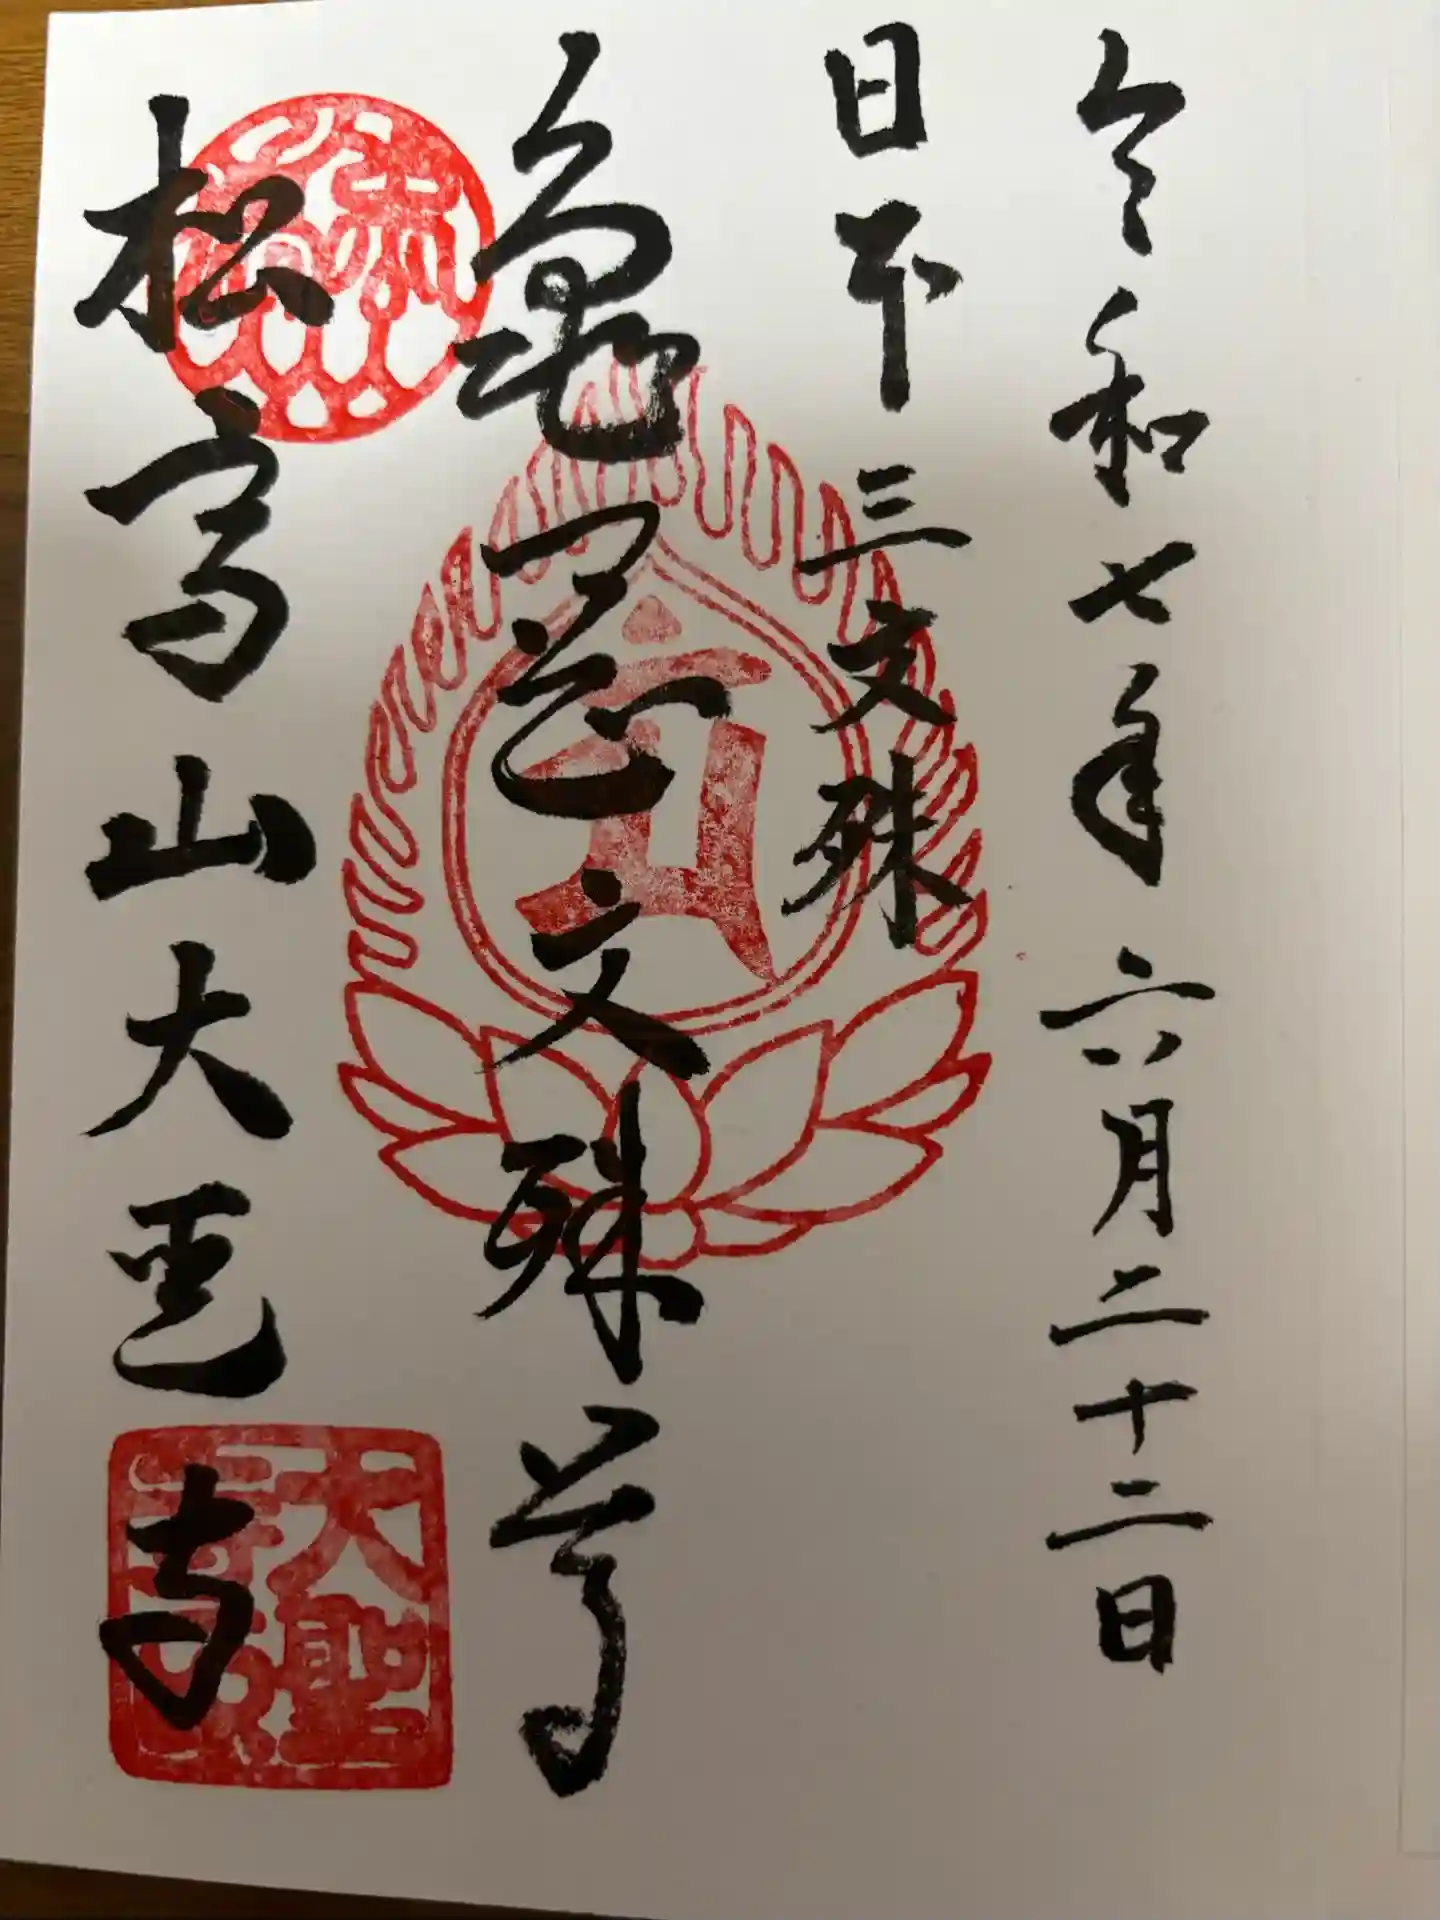 令和七年六月二十二日
日本三文殊
亀岡文殊尊
松高山大聖寺
大聖